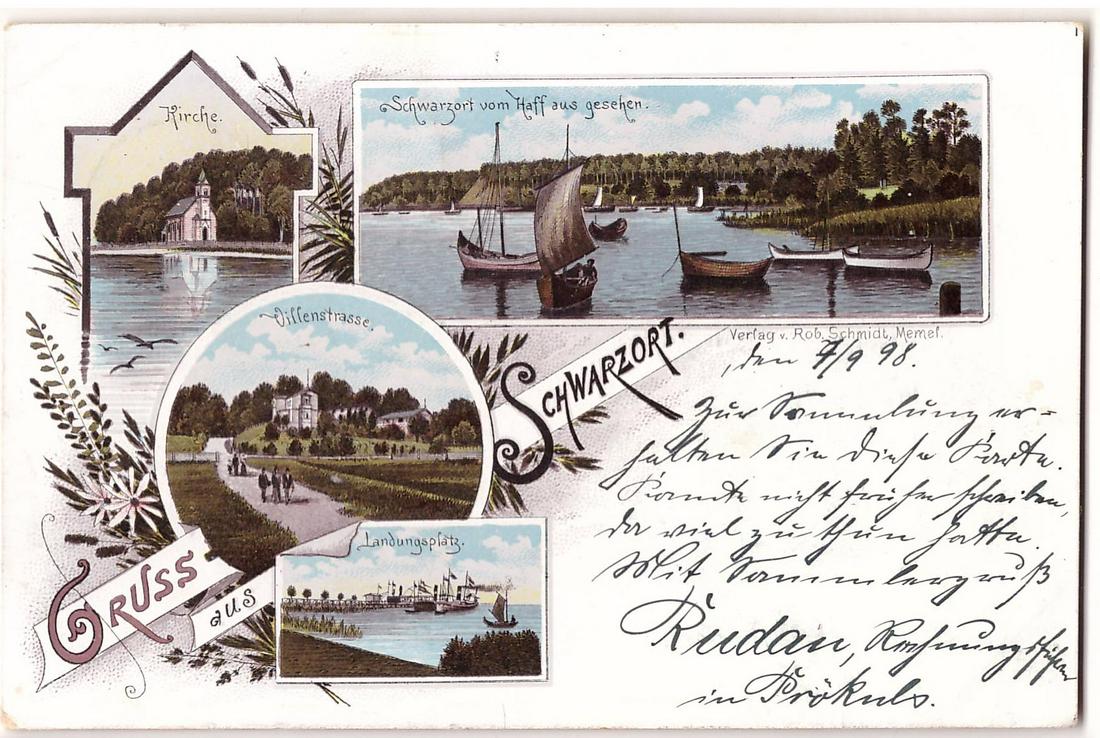 Kirche.
Schwarzort vom Haff aus gesehen.
Villenstrasse.
Landungsplatz.
GRUSS
aus
SCHWARZORT.
Verlag v. Rob. Schmidt, Memel.
den 7/9 98.
Zur Sammlung er=
halten Sie diese Karte.
Konnte nicht früher schreiben,
da viel zu thun hatte.
Mit Sammlergruß
Rudau, Rechnungsführer
in Prökuls.